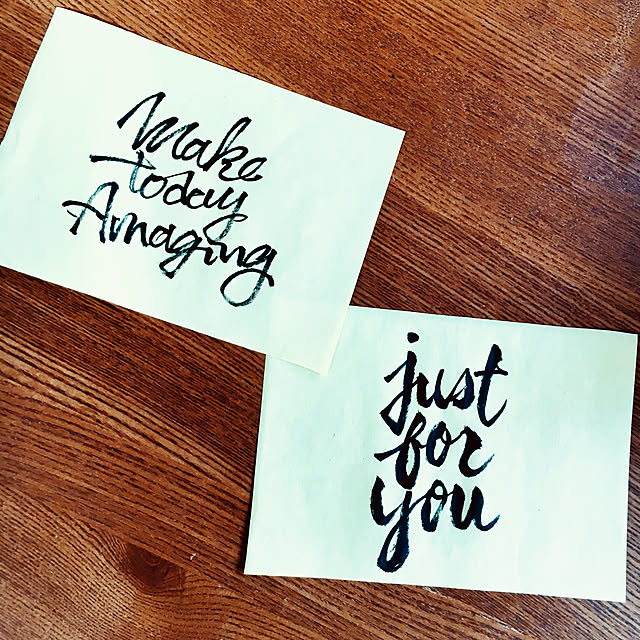 Make
today
Amazing
just
for
you